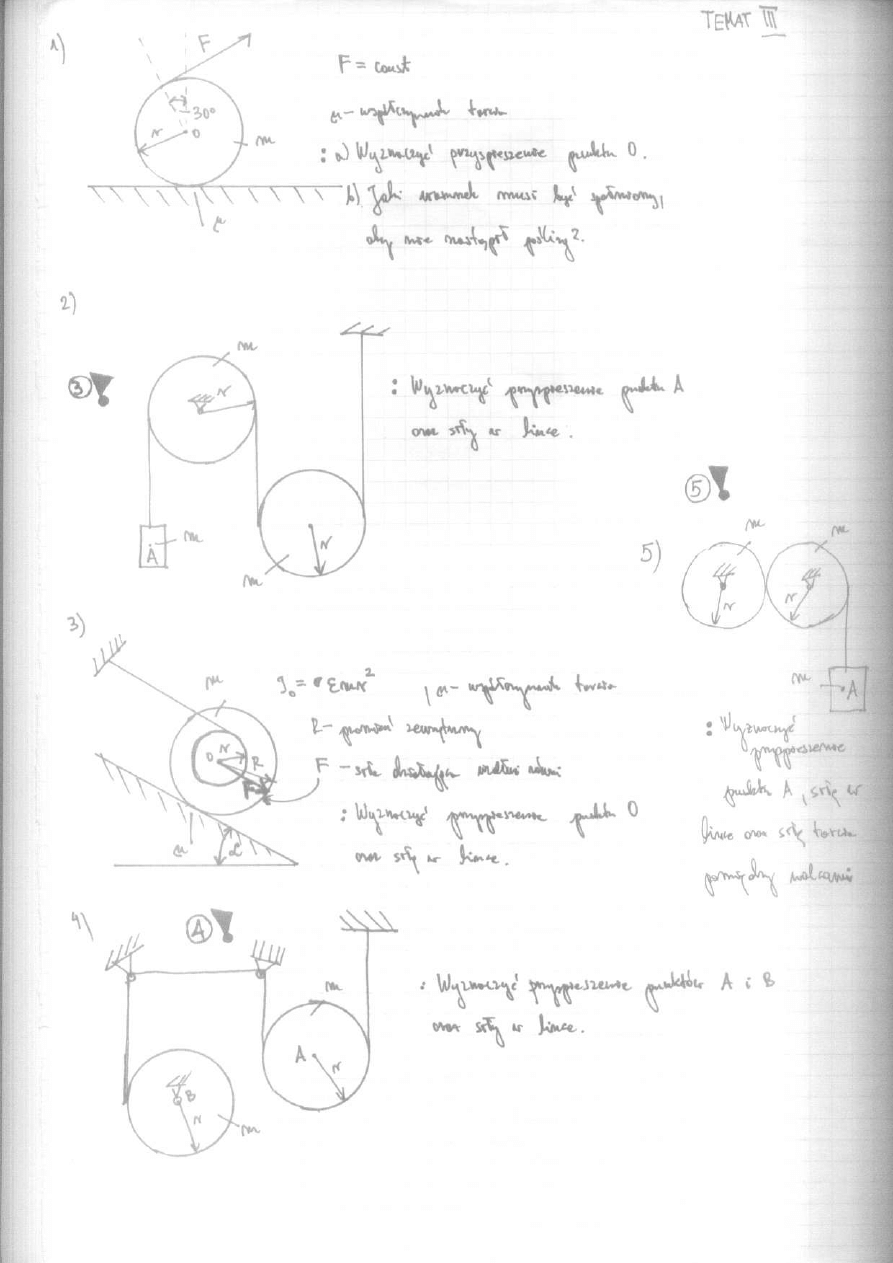 TEMAT III
1)
F
30°
r
O
m
μ
F = const
μ - współczynnik tarcia
: a) Wyznaczyć przyspieszenie punktu O.
b) Jaki warunek musi być spełniony,
aby nie nastąpił poślizg?
2)
3
m
r
A
m
r
m
: Wyznaczyć przyspieszenie punktu A
oraz siły w lince.
5
5)
m
m
r
r
m
A
: Wyznaczyć
przyspieszenie
punktu A, siłę w
lince oraz siłę tarcia
pomiędzy walcami
3)
m
O
r
R
F
μ
α
, μ - współczynnik tarcia
R - promień zewnętrzny
F - siła działająca
: Wyznaczyć przyspieszenie punktu O
oraz siły w lince.
4)
4
m
A
r
B
r
m
: Wyznaczyć przyspieszenie punktów A i B
oraz siły w lince.